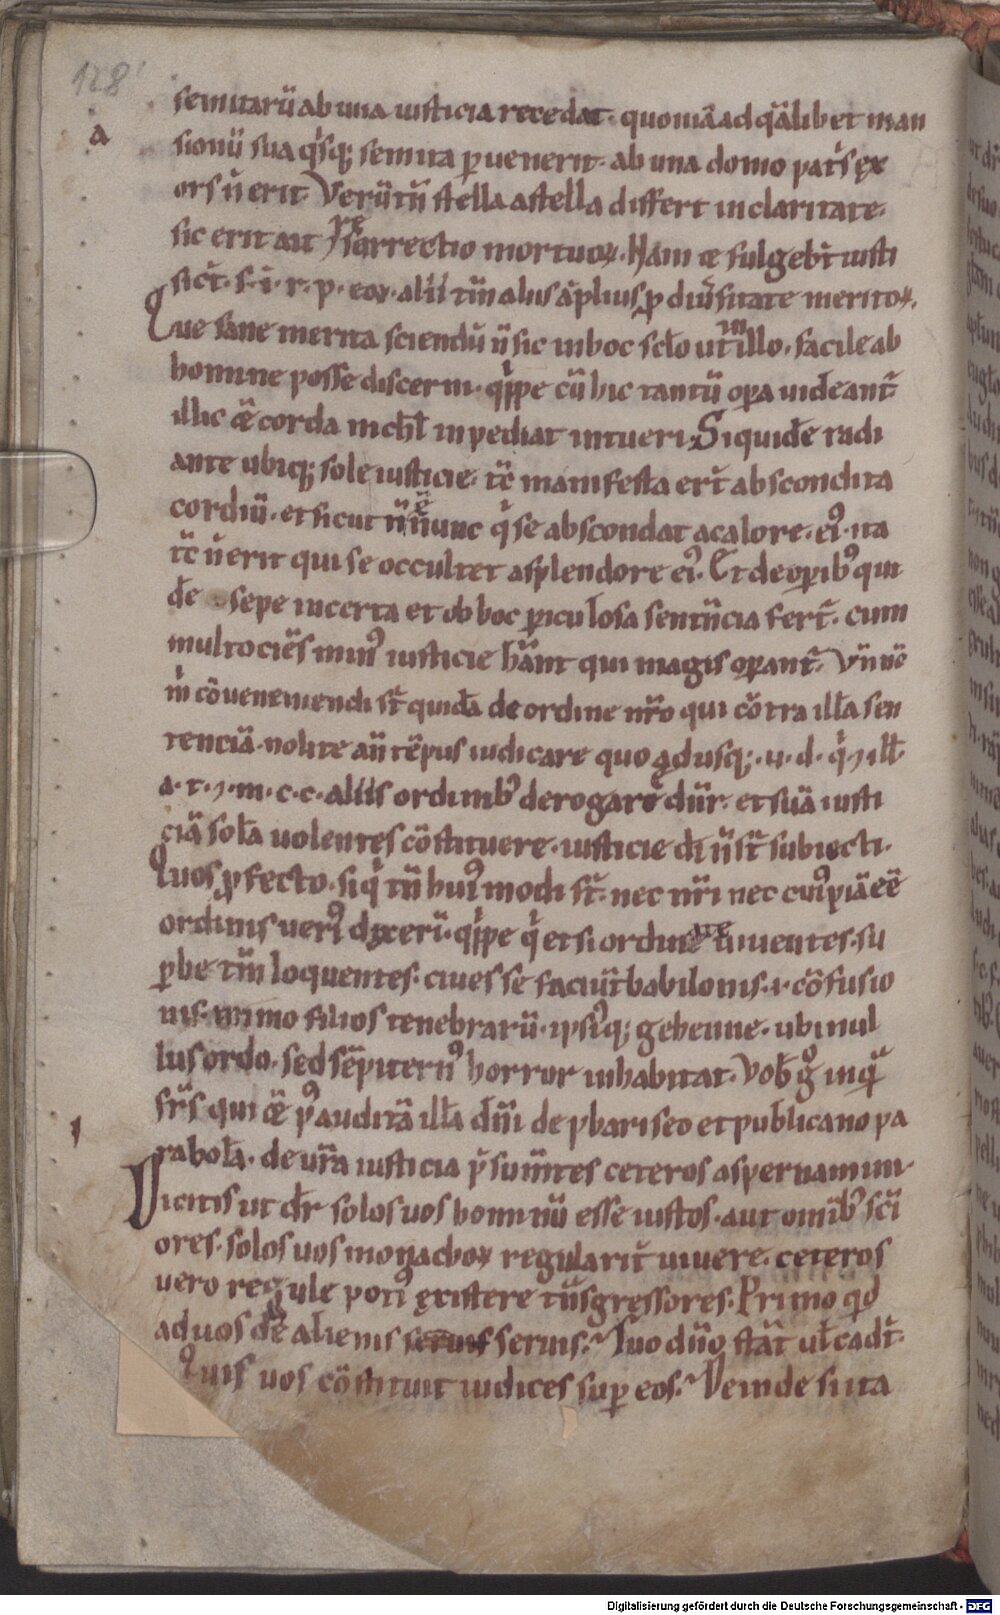 128
semitarū ab una iusticia recedat. quoniā ad q̄alibet man
a
sionū sua q̇sq; semita puenerit. ab una domo patris ex
ors ñ erit. Verūtñ stella a stella differt in claritate.
sic erit aīt resurrectio mortuoꝝ. Nam ⁊ fulgebt̄ iusti
sic̄t. s. i. r. p. eoꝝ. alii tñi aliis āplius ꝓ diūsitate meritoꝝ.
Que sane merita sciendū ñ sic in hoc sclo ut in illo. facile ab
homine posse discerni. q̇ppe cū hic tantū opa uideant̄
illic ⁊ corda nichl̄ inpediat intueri. Siquidē radi
ante ubiq; sole iusticie. tc̄ manifesta ert̄ abscondita
cordiū. et sicut ñ ē nunc q̇ se abscondat a calore. ei⁹. ita
tc̄ ñ erit qui se occultet a splendore ei⁹. Et de opib⁹ qui
dē sepe incerta et ob hoc piculosa sentñcia fert̄. cum
multociēs min⁹ iusticie hānt qui magis opant̄. Vñ nō
in cōueneniendi st̄ quidā de ordine nr̄o qui cōtra illā sen
tenciā. nolite añ tēpus iudicare quo adusq;. u. d. q̇ ⁊ ill̄.
a. t. ⁊. m. c. c. aliis ordinib⁹ derogare dn̄r. et suā iusti
ciā solā uolentes cōstituere. iusticie di ñ st̄ subiecti.
Quos ꝓfecto. siq̇ tñ hui⁹modi st̄. nec nr̄i nec cui⁹piā eē
ordinis veri⁹ dixerī. q̇ppe q̇ etsi ordinate uiuentes. su
pbe tñi loquentes. ciues se faciūt babilonis. i. cōfusio
nis. immo filios tenebrarū. ipsi⁹q; gehenne. ubi nul
lus ordo. sed sēpitern⁹ horror inhabitat. Vob̄ ḡ inqā
frs̄ qui ⁊ p⁹ auditā illā dn̄i de phariseo et publicano pa
rabolā. de ur̄a iusticia p̄sumntes ceteros aspernamini.
Dicitis ut dr̄ solos uos hominū esse iustos. aut omīb⁹ sci
ores. solos uos monachoꝝ regularit̄ uiuere. ceteros
vero regule poti⁹ existere tn̄sgressores. Primo qd
ad uos dē alienis seruis. Suo dn̄o stāt ul̄ cadt̄.
Quis uos cōstituit iudices sup eos. Deinde si ita
Digitalisierung gefördert durch die Deutsche Forschungsgemeinschaft - DFG